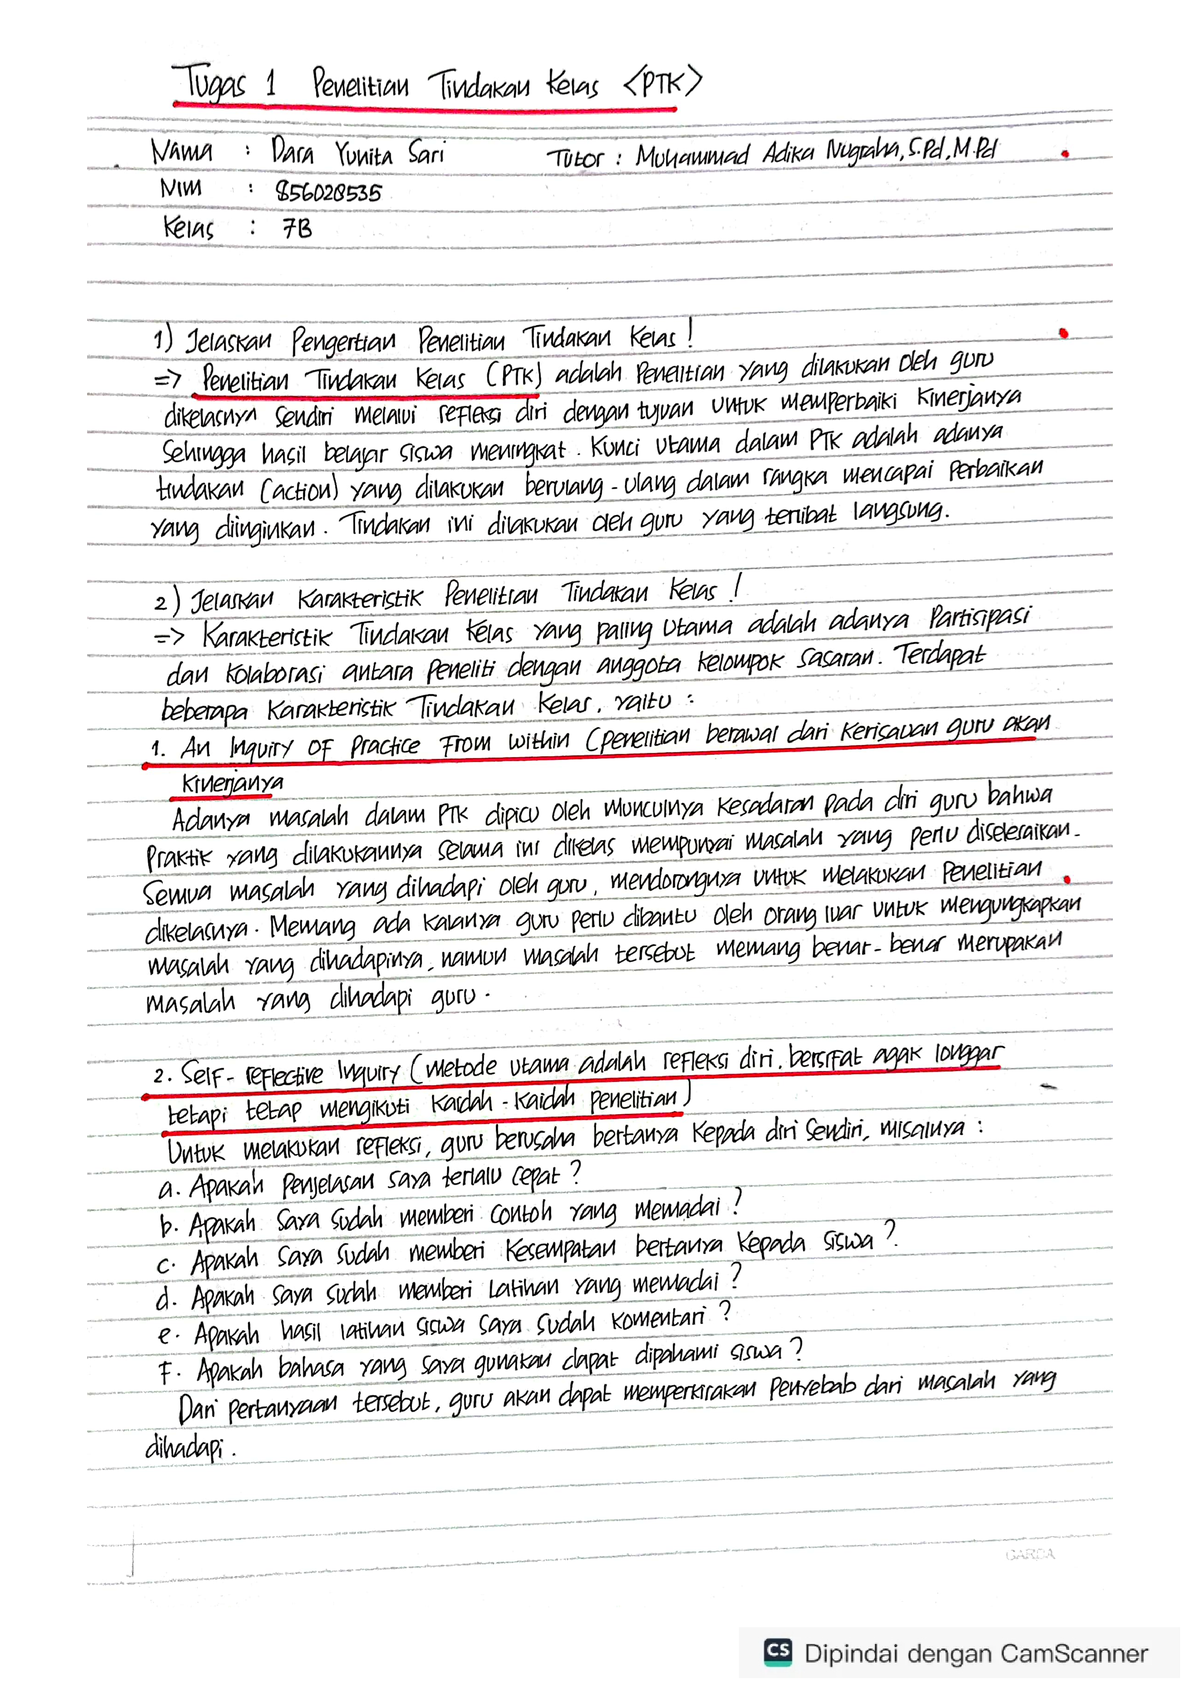 Tugas 1 Penelitian Tindakan Kelas <PTK>
Nama : Dara Yunita Sari Tutor : Muhammad Adika Nugraha, S.Pd, M.Pd
NIM : 856028535
Kelas : 7B
1) Jelaskan Pengertian Penelitian Tindakan Kelas !
=> Penelitian Tindakan Kelas (PTK) adalah Penelitian yang dilakukan oleh guru
dikelasnya sendiri melalui refleksi diri dengan tujuan untuk memperbaiki Kinerjanya
Sehingga hasil belajar siswa meningkat. Kunci utama dalam PTK adalah adanya
tindakan (action) yang dilakukan berulang-ulang dalam rangka mencapai Perbaikan
yang diinginkan. Tindakan ini dilakukan oleh guru yang terlibat langsung.
2) Jelaskan Karakteristik Penelitian Tindakan Kelas !
=> Karakteristik Tindakan Kelas yang paling utama adalah adanya Partisipasi
dan Kolaborasi antara Peneliti dengan anggota kelompok sasaran. Terdapat
beberapa Karakteristik Tindakan Kelas, yaitu :
1. An Inquiry OF Practice From within (penelitian berawal dari Kerisauan guru akan
Kinerjanya
Adanya masalah dalam PTK dipicu oleh munculnya Kesadaran pada diri guru bahwa
Praktik yang dilakukannya selama ini dikelas mempunyai masalah yang perlu diselesaikan.
Semua masalah yang dihadapi oleh guru, mendorongnya untuk melakukan Penelitian
dikelasnya. Memang ada kalanya guru perlu dibantu oleh orang luar untuk mengungkapkan
masalah yang dihadapinya, namun masalah tersebut memang benar-benar merupakan
masalah yang dihadapi guru.
2. Self-reflective Inquiry (metode utama adalah refleksi diri, bersifat agak longgar
tetapi tetap mengikuti kaidah-kaidah penelitian)
Untuk melakukan refleksi, guru berusaha bertanya Kepada diri Sendiri, misalnya :
a. Apakah Penjelasan saya terlalu cepat ?
b. Apakah saya sudah memberi contoh yang memadai ?
c. Apakah saya sudah memberi Kesempatan bertanya Kepada siswa ?
d. Apakah saya sudah memberi Latihan yang memadai ?
e. Apakah hasil latihan siswa saya sudah komentari ?
F. Apakah bahasa yang saya gunakan dapat dipahami siswa ?
Dari pertanyaan tersebut, guru akan dapat memperkirakan Penyebab dari masalah yang
dihadapi.
GARDA
CS Dipindai dengan CamScanner